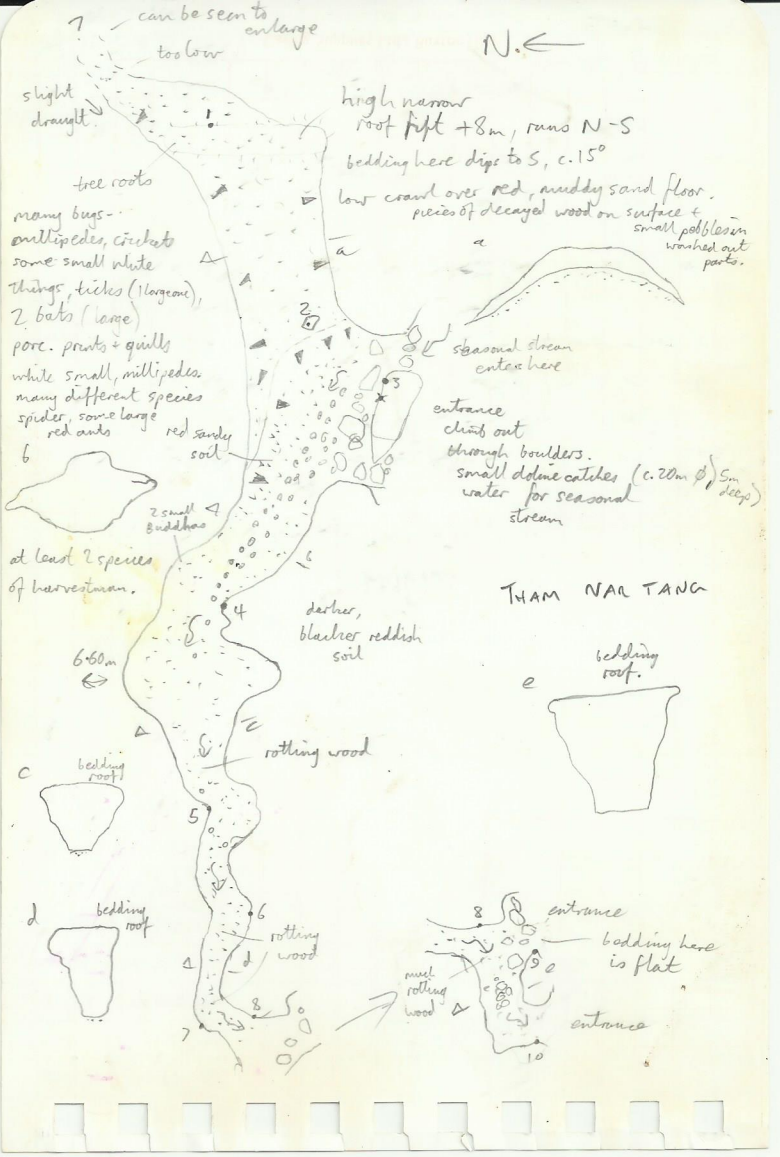 ?
can be seen to
enlarge
too low
N. ←
slight
draught.
1
high narrow
roof rift +8m, runs N-S
bedding here dips to S, c.15°
tree roots
low crawl over red, muddy sand floor.
pieces of decayed wood on surface +
small pebbles in
washed out
parts.
many bugs -
millipedes, crickets
some small white
things, ticks (1 large one),
2 bats (large)
porc. prints + quills
white small, millipedes.
many different species
spider, some large
red ants
a
a
2
seasonal stream
enters here
3
entrance
climb out
through boulders.
small doline catches (c.20m ø, 5m
deep)
water for seasonal
stream
red sandy
soil
b
2 small
Buddhas
at least 2 species
of harvestman.
b
4
darker,
blacker reddish
soil
THAM NAR TANG
6.60m
c
rotting wood
e
bedding
roof.
c
bedding
roof
5
d
bedding
roof
6
rotting
wood
d
7
8
8
entrance
bedding here
is flat
9
e
much
rotting
wood
entrance
10